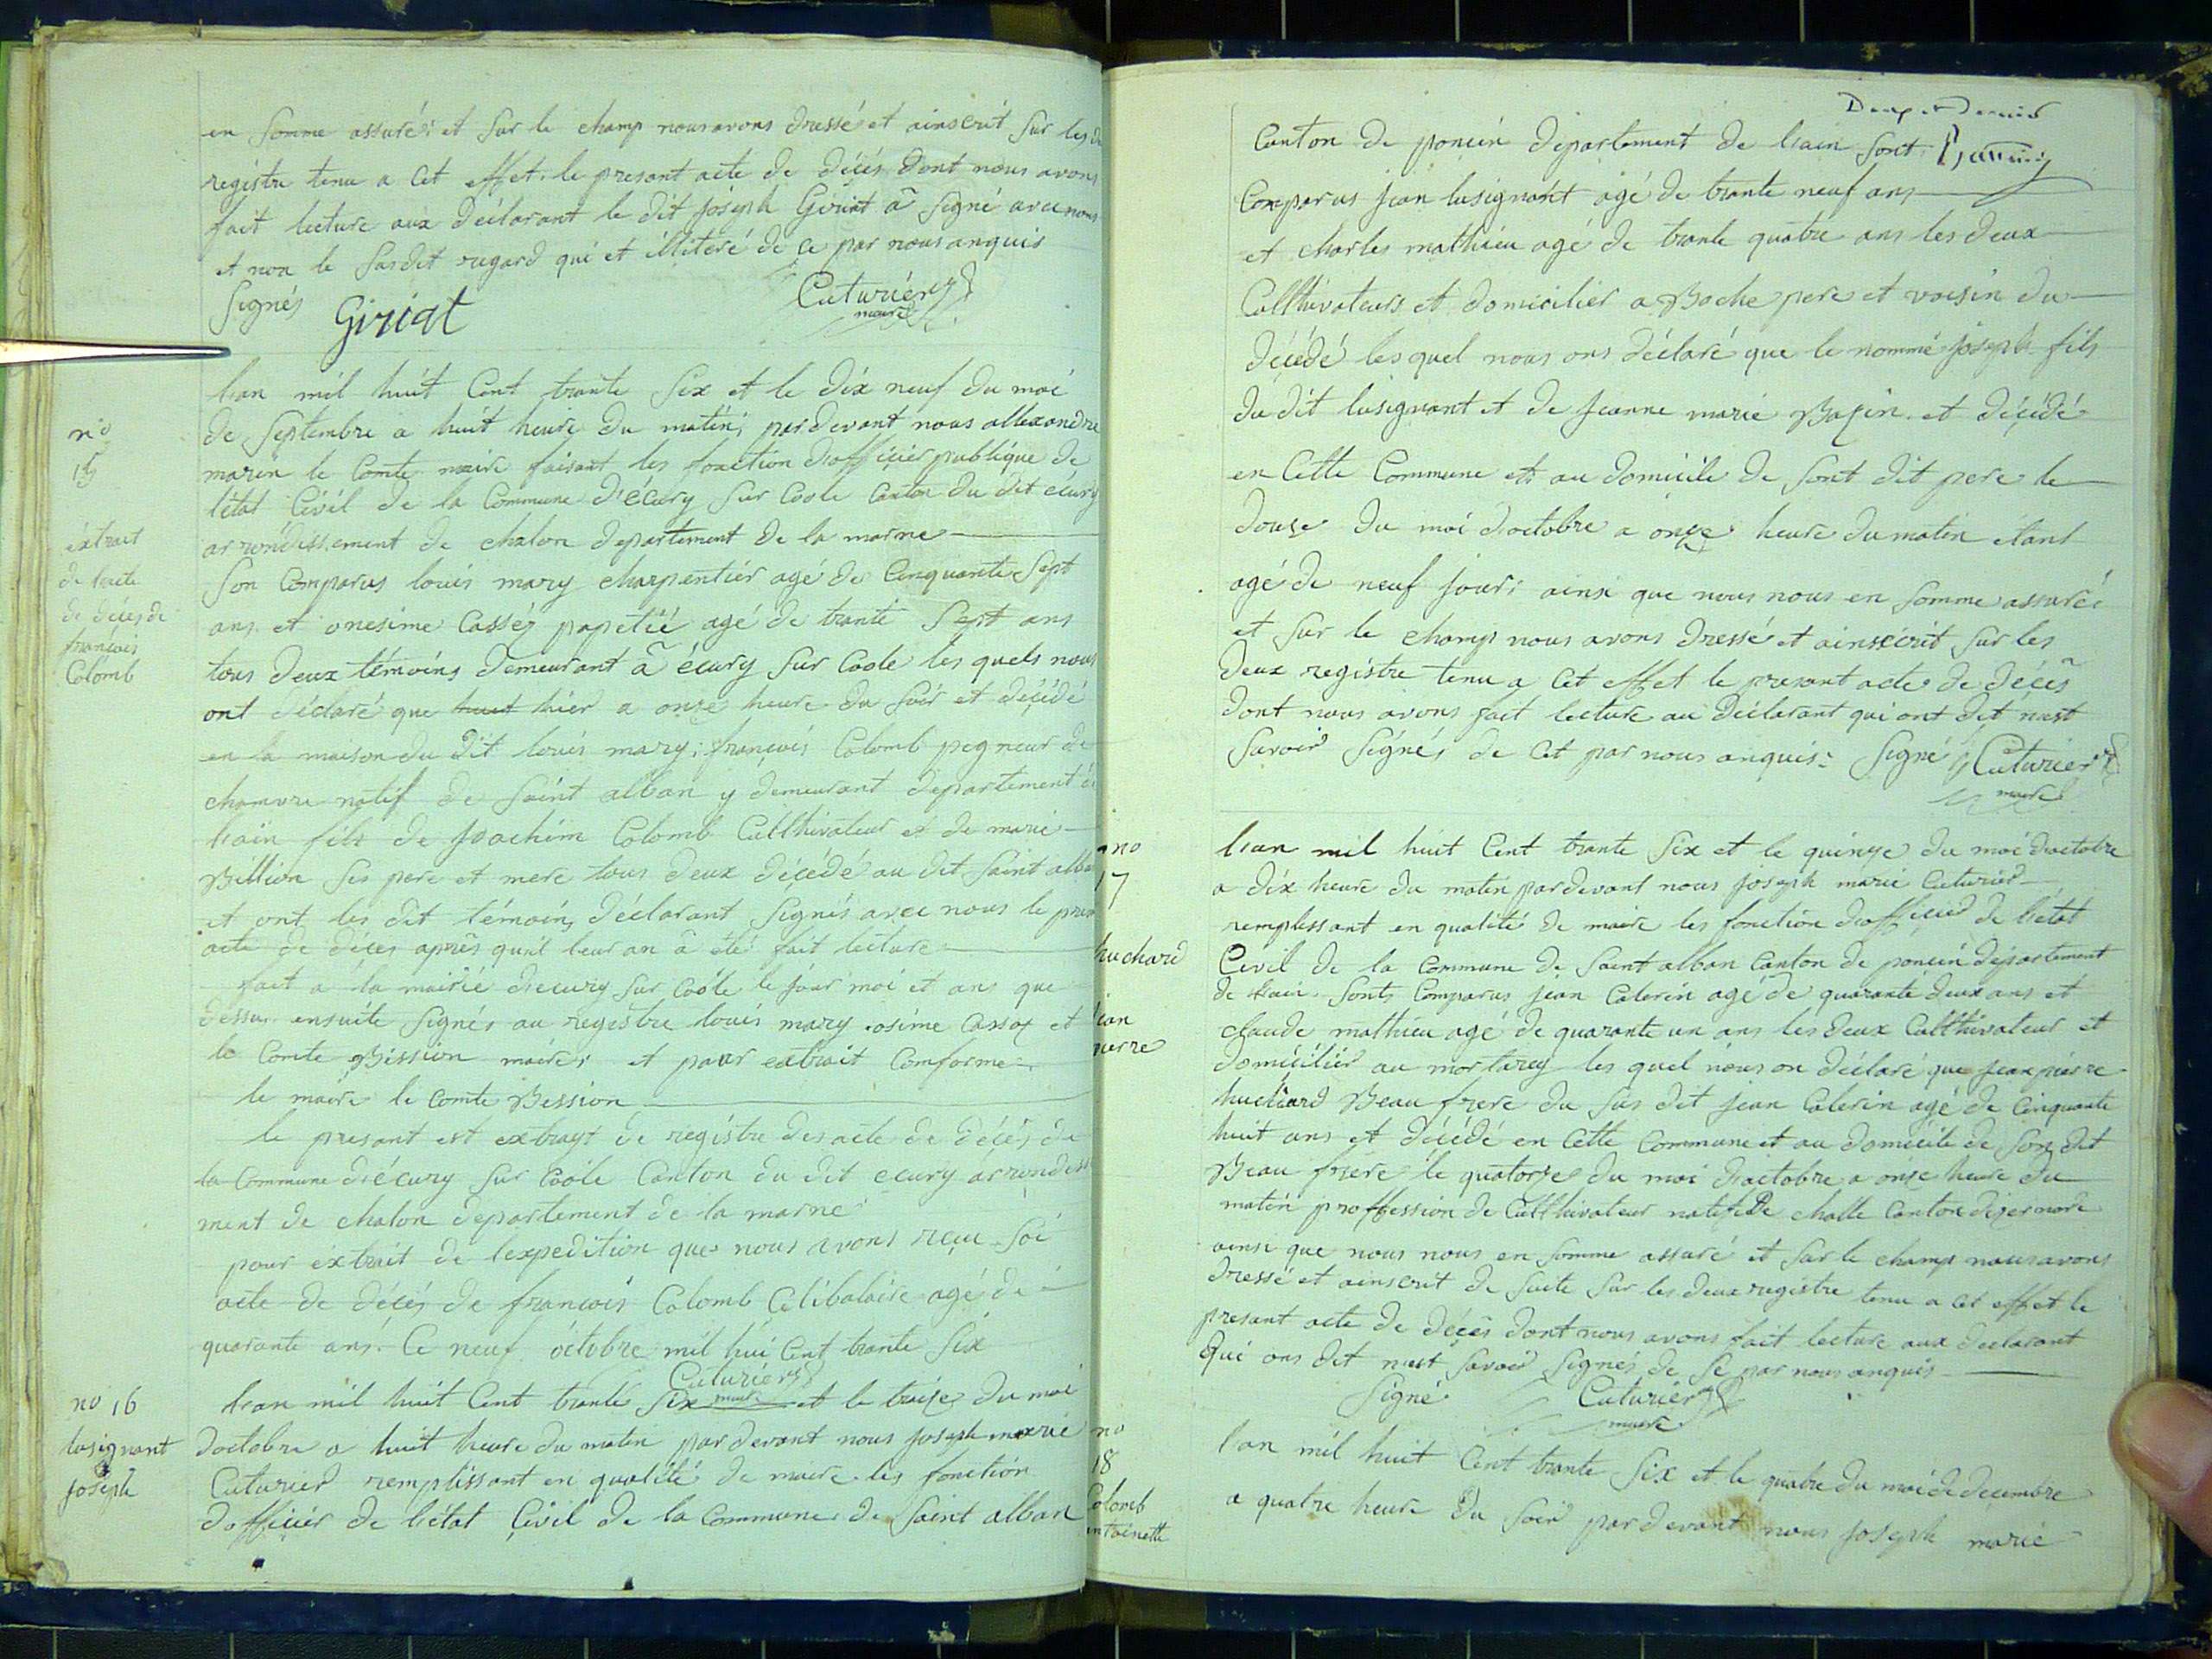 en Somme assuré: et sur le champ nous avons dressé et ainscrit sur les
registre tenu a Cet effet. le presant acte de décés dont nous avons
fait lecture aux déclarant le dit joseph Giriat â Signé avec nous
et non le Susdit regard qui et illiteré de ce par nous anquis
Signés Giriat Cuturier
maire
n°
15
éxtrait
de lacte
de décés de
françois
Colomb
L'an mil huit Cent trante Six et le dix neuf du moi
de Septembre a huit heure du matin; pardevant nous allexandre
marin le Comte maire faisant les fonction d'officier publique de
létat Civil de la Commune d'écury Sur Coole Canton du dit écury
arrondissement de chalon departement de la marne
Son Comparus louis mary charpentier agé de Cinquante Sept
ans et onesime Cassés papetié agé de trante Sept ans
tous deux témoins demeurant â écury Sur Coole les quels nous
ont déclaré que huit hiér a onze heure du Soir et décédé
en la maison du dit louis mary; françois Colomb pegneur de
chanvre natif de Saint alban y demeurant departement de
L'ain fils de Joachim Colomb Cullhivateur et de marie
Billion Ses pere et mere tous deux décédé au dit Saint alban
et ont les dit témoins déclarant Signés avec nous le
acte de décés aprês qu'il leur an â été fait lecture
fait a la mairie d'ecury Sur Coole le jour moi et ans que
dessu. ensuite Signés au registre louis mary osime Cassox et
le Comte Bission maire; et pour extrait Conforme
le maire le Comte Bession
le presant est extrayt de registre des acte de décés de
la Commune d'écury Sur Coole Canton du dit ecury arrondisse
ment de chalon departement de la marne
pour éxtrait de l'expedition que nous avons reçu Soi
acte de décés de francois Colomb Célibataire agé de
quarante ans. Ce neuf octobre mil hui Cent trante Six
Cuturier
maire
no 16
lusignant
joseph
L'an mil huit Cent trante Six et le traize du moi
doctobre a huit heure du matin pardevant nous joseph marie
Cuturier remplissant en qualité de maire les fonction
d'officier de l'état Civil de la Commune de Saint alban
Canton de poncin département de L'ain Sont
Comparus jean lusignant agé de trante neuf ans
et charles mathieu agé de trante quatre ans les deux
Cullhivateurs et domicilier a Boche pere et voisin du
décédé les quel nous ons déclaré que le nommé joseph fils
du dit lusignant et de Jeanne marie Bazin et décédé
en Cette Commune et au domicile de Sont dit pere le
douze du moi d'octobre a onze heure du matin étant
agé de neuf jours ainsi que nous nous en Somme assuréé
et Sur le champ nous avons dressé et ainscrit Sur les
deux registre tenu a Cet effet le presant acte de décés
dont nous avons fait lecture au Déclarant qui ont dit nest
Savoir Signés de Cet par nous anquis: Signé Cuturier
maire
no
17
huchard
jean
pierre
L'an mil huit Cent trante Six et le quinze du moi d'octobre
a dix heure du matin pardevant nous joseph marie Cuturier
remplissant en qualité de maire les fonction d'officier de l'état
Civil de la Commune de Saint alban Canton de poncin département
de L'ain. Sont Comparus jean Colerin agé de quarante deux ans et
claude mathieu agé de quarante un ans les deux Cullthivateur et
domicilier au mortarey les quel nous on déclaré que jean pierre
huchard Beau frere du Sus dit jean Colerin agé de Cinquante
huit ans et décédé en Cette Commune et au domicile de Son dit
Beau frere le quatorze du moi d'octobre a onze heure du
matin proffession de Cullthivateur natif de challe Canton dizernore
ainsi que nous nous en Somme assuré et Sur le champ nous avons
dressé et ainscrit de Suite Sur les deux registre tenu a Cet effet le
presant acte de décês dont nous avons fait lecture aux declarant
Qui ons dit nest Savoir Signés de Se par nous anquis
Signé Cuturier
maire
no
18
Colomb
antoinette
l'an mil huit Cent trante Six et le quatre du moi de decembre
a quatre heure du Soir pardevant nous joseph marie